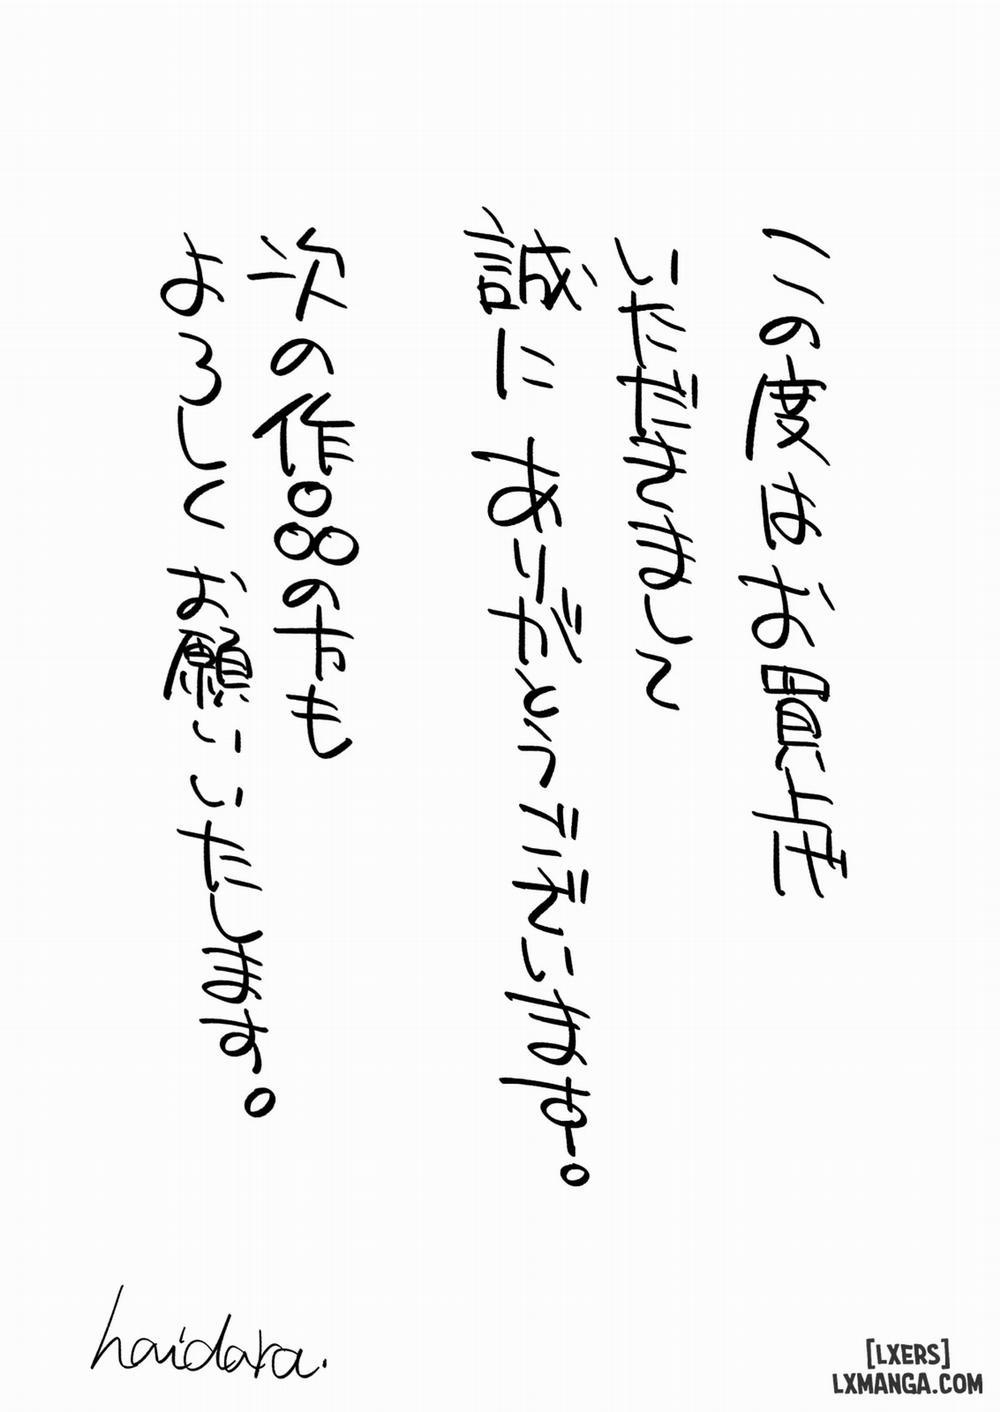 この度はお買上
いただきまして
誠にありがとうございます。
次の作品の方も
よろしくお願いいたします。
haidara.
[LXERS]
LXMANGA.COM